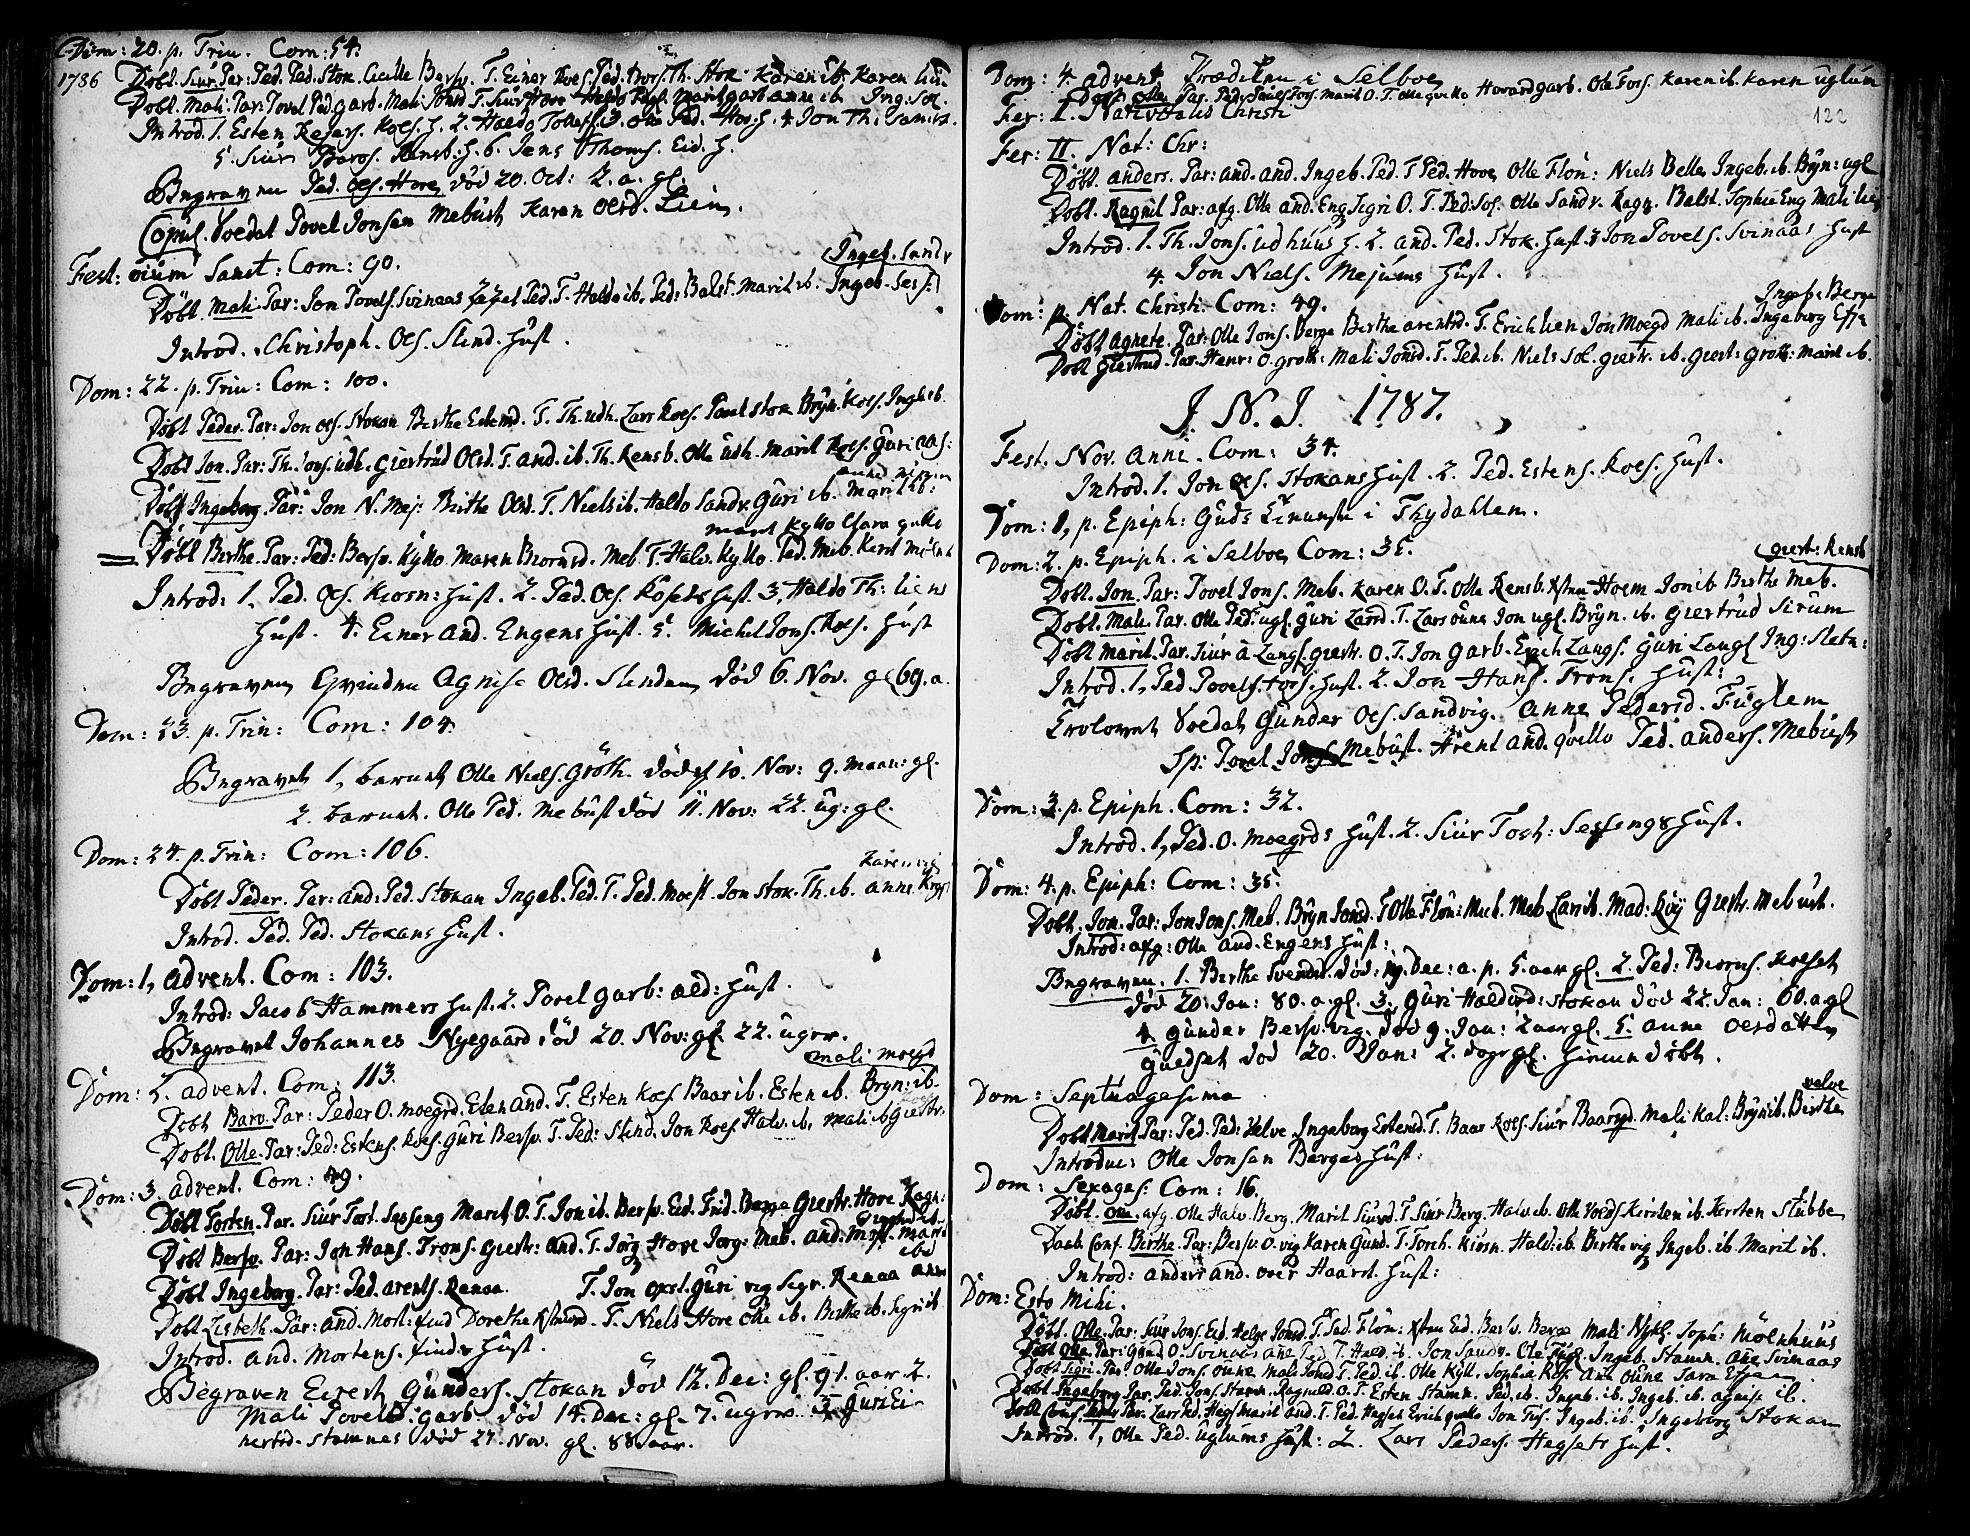 Dom: 20. p. Trin. Com: 54.
1786 Döbt. Siur. Par: Ped. Ped. Stok. Cicille Bersv. T. Einer Koes. Ped. Th. Stok. Karen ib. Karen
Döbt. Mali. Par: Povel Ped. garb. Mali T. Siur Hove Haldo Marit garb. anne ib. Ing: Sol.
Introd. 1. Esten Koes. H. 2. Haldo 3. Olle Ped. H. 4 Jon Th:
5. Siur Baros. Rensb: H. 6. Jens Thoms. Eid. H.
Begraven Ped. Oes. Hove död 20. Oct: 2. a. gl.
Copul. Soedat Povel Jonsen Mebust Karen Olsd. Lien.
Fest: oium Sanct: Com: 90. (Ingeb. Sandv
Döbt. Mali. Par: Jon Povels. Svinaas Ped. T. Haldo ib. Ped: Balst. Marit ib. Ingeb. Sess:)
Introd. Christoph. Oes. Slind. Hust.
Dom: 22. p. Trin: Com: 100.
Döbt Peder. Par: Jon Oes. Stokan Berthe T. Th. udh. Lars Koes. Povel stok Bryn. Koes. Ingb ib.
Döbt Jon. Par: Th. Jons. udh. Giertrud Olsd. T. and. ib. Th. Rensb. Olle udh. Marit Koes. Guri aas:
Döbt Ingeborg. Par: Jon N. Mej: Birthe Olsd. T. Niels ib. Haldo Sandv. Guri ib. Marit ib:
Marit Kyllo Clara qvello
Döbt Birthe. Par: Ped: Bersv. Kyllo Maren Biornsd. Meb. T. Halv. Kyllo. Ped. Meb.
Introd: 1. Ped. Oes. Krosn: Hust. 2. Ped. Oes. Kosets Hust. 3, Haldo Th: Lien
Hust. 4. Einer and. Engens Hust. 5. Michel Jons. Koes. Hust
Begraven Qvinden Agnise Olsd. Slindem död 6. Nov. gl 69. a.
Dom: 23. p. Trin: Com: 104.
Begravet 1, barnet Olle Niels. Gröth. döde 10. Nov: 9. maan: gl.
2. barnet. Olle Ped. Mebust död 11. Nov: 22. ug: gl.
Dom: 24. p. Trin: Com: 106.
Döbt Peder. Par: and: Ped. Stokan Ingeb. Ped. T. Ped. Moest. Jon Stok. Th. ib. anne
Introd. Ped. Ped. Stokans Hust.
Dom: 1, advent. Com: 103.
Introd: Jacob Hammers Hust. 2. Povel garb: ald: Hust.
Begravet Johannes Nyegaard död 20. Nov: gl. 22. uger.
(Mali Moegd
Dom: 2. advent. Com: 113.
Döbt Baro. Par: Peder O. Moegrd. Elen and. T. Esten Koes Baar ib. Esten ib. Bryn: ib.
Döbt. Olle. Par: Ped: Estens. Koes. Guri Bersv. T. Ped: Slend. Jon Koes Halv. ib, Mali ib Giertr.
Dom: 3. advent. Com: 49.
Döbt Tosten. Par. Siur Tost. Sesseng Marit O. T. Jon ib. Bersv. Eid. Berge Giertr. Hove Ragn:
Döbt Bersv. Par: Jon Hans. Trons. Giertr: and. T. Jörg Hove Jorg: Meb. and.
Döbt Ingeborg. Par: Ped. arents. Renaa. T. Jon opsl. Guri vig Sigr. Renaa ane
Döbt Lisbeth. Par: and. Mort: find Dorethe T. Niels Hove Ole ib. Birthe ib. Sigri ib
Introd. and. Mortens. finds Hust.
Begraven Evert Gunders. Stokan död 12. Dec: gl. 91. aar 2.
Mali Povelsd. garb. död 14. Dec: gl. 7. uger 3. Guri Ei-
nersd. Stamnes död 27. Nov. gl. 88 aar.
Dom: 4. advent. Prædiken i Selboe
Döbt. Olle Par. Ped: Povels Fors. Marit O. T. Olle qvello Hovard garb. Ole Fors. Karen ib. Karen uglum
Fer: I. Nativitatis Christi
122
Fer: II. Nat: Chr:
Döbt. anders. Par: and. and. Ingeb. Ped. T Ped. Hove, Olle Flön: Niels Belle, Ingeb. ib. Bryn: ugl
Döbt. Ragnil Par: afg. Olle and. Eng Sigri O. T. Ped: Sol. Olle Sandv. Ragn. Balst. Sophie Eng Mali Lien
Introd. 1. Th. Jons. udhuus H. 2. and. Ped. Stok. Hust. 3 Jon Povels. Svinaas Hust
4. Jon Niels. Mejums Hust.
Dom: p. Nat. Christi. Com: 49.
Ingeb: Berge
Döbt Agnete. Par: Olle Jons. Berge Birthe arentsd. T. Erich Lien Jon Moegd Mali ib. Ingeborg
Döbt Giertrud. Par. Henr: O. groth: Mali Jonsd. T. Ped. ib. Niels Sol. Giertr. ib. Giert: groth: Marit ib.
J. N. J. 1787.
Fest. Nov. Anni. Com: 34.
Introd. 1. Jon Oes. Stokans Hust. 2. Ped. Estens. Koes. Hust.
Dom: 1, p. Epiph: Guds Tieneste i Thydahlen.
Dom: 2. p. Epiph. i Selboe, Com: 35.
(Giert: Rensb
Döbt. Jon. Par: Povel Jons. Meb. Karen O. T. Olle Rensb. Hoem Jon ib Birthe Meb.
Döbt. Mali. Par. Olle Ped: ugl. Guri Larsd. T. Lars oune Jon ugl. Bryn. ib. Giertrud Sirum
Döbt Marit. Par. Siur a Langs. Giertr. O. T. Jon garb. Erich Langs. Guri Langl Ing: Sletn:
Introd. 1, Ped. Povels. Fors. Hust. 2. Jon Hans. Trons. Hust:
Trolovet Soedat Gunder Oes. Sandvig. Anne Pedersd. Fuglem
Sp: Povel Jons. Mebust. Arent and. qvello Ped. anders. Mebust
Dom: 3. p. Epiph. Com: 32.
Introd. 1, Ped. O. Moegrds Hust. 2. Siur Tost: Sessengs Hust.
Dom: 4. p. Epiph: Com: 35.
Döbt. Jon. Par: Jon Jons. Meb. Bryn Jonsd. T Olle Flön: Meb. Lars ib. Mad: Kvy Giertr. Mebust.
Introd: afg: Olle and. Engens Hust:
Begraven. 1. Berthe Svends. död: 19. Dec: a. p. 5. aar gl. 2. Ped: Biorns. Kolset
död 20. Jan: 80. a. gl. 3. Guri Haldsd: Stokan död 22. Jan: 60. a gl
4. Gunder Bersv. vig. död 9. Jan: 2 aar gl. 5. Anne Oesdatter
Guldset död 20. Jan: 2. dage gl. hiemmedöbt.
Dom: Septuagesima
selve
Döbt Marit Par: Ped. Ped: Selve. Ingeborg Estensd. T. Baar Koes. Siur Baarsgd. Mali Kal: Bryn ib. Birthe
Introduc: Olle Jonsen Berges Hust:
Dom: Sexages: Com: 16.
Döbt. Ole. afg. Olle Halv. Berg. Marit Siursd. T. Siur Berg. Halv ib. Olle Kirsten ib. Kersten Stubbe
Daab Conf. Birthe. Par: Bersv. O. vig Karen Gund. T. Torch. Kirsn. Hald. ib. Birthe vig Ingeb. ib. Marit ib.
Introd: anders and. over Haard. Hust:
Dom: Esto Mihi.
Döbt. Olle. Par: Siur Jons. Eid. Helge Jonsd. T. Ped. Flön: Eid. Bersv. Berge Mali Soph: Molnhuus
Döbt Olle. Par: Gund O. Svinaas T. Hald. ib. Jon Sandv. Ole Fugl. Ingeb. Stamn. Ane Svinaas
Döbt Sigri. Par. Olle Jons. Oune Mali Jonsd T. Ped. ib. Olle Kyll. Sophia Koes. Ane Oune Sara
Döbt. Ingeborg Par. Ped. Jons. Stamn. Ragnild O. T. Esten Stamn. Ped. ib. Ingeb. ib. Ingeb: ib. agnise ib.
Döbt Conf. Par. Lars Ped. Hegs. Marit and. T. Ped. Hegset Erich qvello Jon Ingeb. ib. Ingeborg Stokan
Introd. 1, Olle Ped. Uglums Hust: 2. Lars Peders. Hegsets Hust.